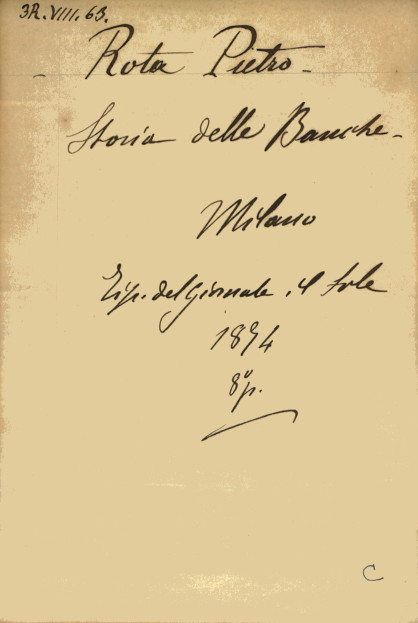 3R.VIII.63.
- Rota Pietro -
Storia delle Banche -
Milano
Tip. del Giornale il Sole
1874
8º p.
C